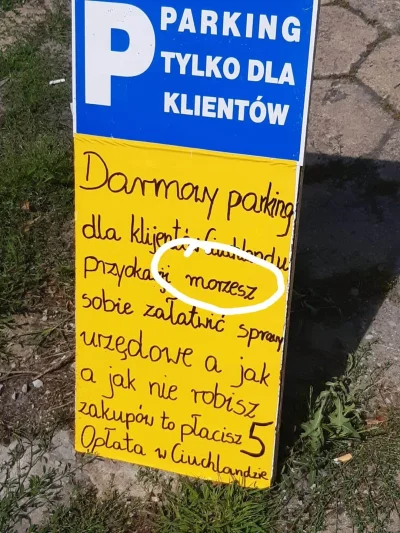 P PARKING
TYLKO DLA
KLIENTÓW
Darmowy parking
dla klijentów Ciuchlandu
przyokazji morzesz
sobie załatwić sprawy
urzędowe a jak
a jak nie robisz
zakupów to płacisz 5
Opłata w Ciuchlandzie